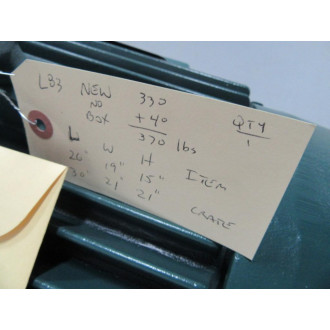 LB3 NEW 330
NO +40 QTY
BOX 370 lbs 1
L W H
26" 19" 15" ITEM
30" 21" 21" CRATE